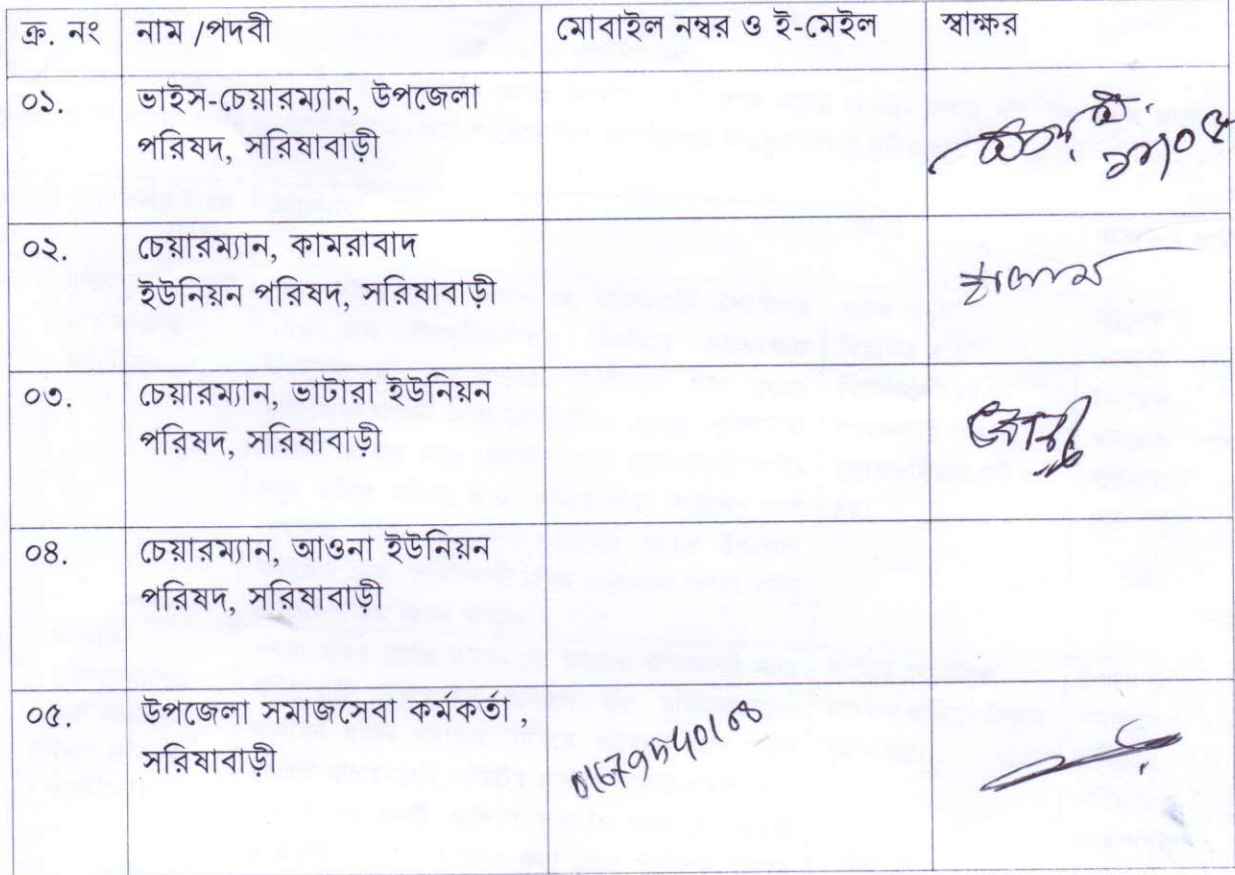 ক্র. নং নাম /পদবী মোবাইল নম্বর ও ই-মেইল স্বাক্ষর
০১. ভাইস-চেয়ারম্যান, উপজেলা
পরিষদ, সরিষাবাড়ী
০২. চেয়ারম্যান, কামরাবাদ
ইউনিয়ন পরিষদ, সরিষাবাড়ী
০৩. চেয়ারম্যান, ভাটারা ইউনিয়ন
পরিষদ, সরিষাবাড়ী
০৪. চেয়ারম্যান, আওনা ইউনিয়ন
পরিষদ, সরিষাবাড়ী
০৫. উপজেলা সমাজসেবা কর্মকর্তা ,
সরিষাবাড়ী